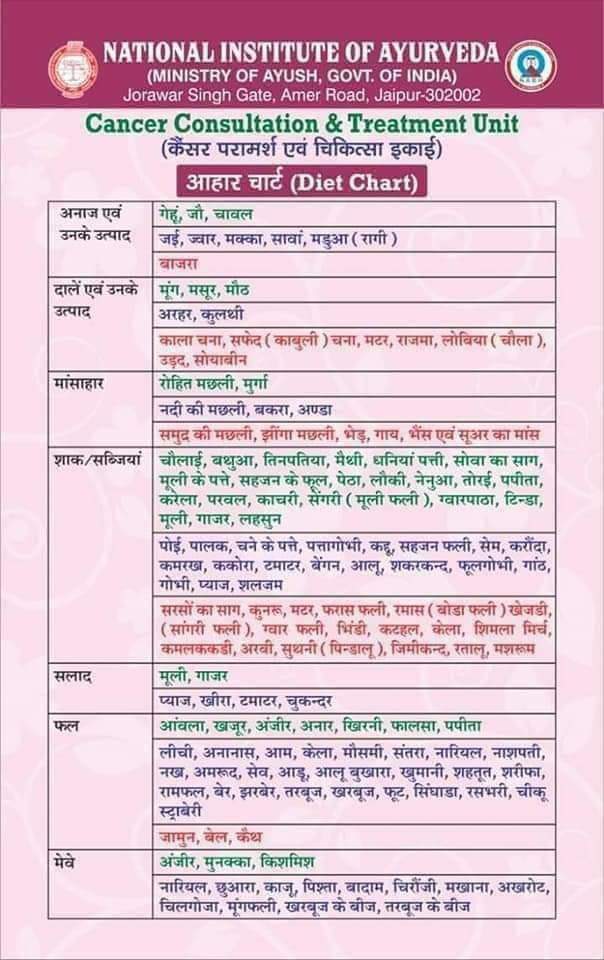 NATIONAL INSTITUTE OF AYURVEDA
(MINISTRY OF AYUSH, GOVT. OF INDIA)
Jorawar Singh Gate, Amer Road, Jaipur-302002
Cancer Consultation & Treatment Unit
(कैंसर परामर्श एवं चिकित्सा इकाई)
आहार चार्ट (Diet Chart)
अनाज एवं
उनके उत्पाद
गेहूं, जौ, चावल
जई, ज्वार, मक्का, सावां, मडुआ ( रागी )
बाजरा
दालें एवं उनके
उत्पाद
मूंग, मसूर, मौठ
अरहर, कुलथी
काला चना, सफेद ( काबुली ) चना, मटर, राजमा, लोबिया ( चौला ),
उड़द, सोयाबीन
मांसाहार
रोहित मछली, मुर्गा
नदी की मछली, बकरा, अण्डा
समुद्र की मछली, झींगा मछली, भेड़, गाय, भैंस एवं सूअर का मांस
शाक/सब्जियां
चौलाई, बथुआ, तिनपतिया, मैथी, धनियां पत्ती, सोवा का साग,
मूली के पत्ते, सहजन के फूल, पेठा, लौकी, नेनुआ, तोरई, पपीता,
करेला, परवल, काचरी, सेंगरी ( मूली फली ), ग्वारपाठा, टिन्डा,
मूली, गाजर, लहसुन
पोई, पालक, चने के पत्ते, पत्तागोभी, कद्दू, सहजन फली, सेम, करौंदा,
कमरख, ककोरा, टमाटर, बेंगन, आलू, शकरकन्द, फूलगोभी, गांठ,
गोभी, प्याज, शलजम
सरसों का साग, कुनरू, मटर, फरास फली, रमास ( बोडा फली ) खेजडी,
( सांगरी फली ), ग्वार फली, भिंडी, कटहल, केला, शिमला मिर्च,
कमलककडी, अरवी, सुथनी ( पिन्डालू ), जिमीकन्द, रतालू, मशरूम
सलाद
मूली, गाजर
प्याज, खीरा, टमाटर, चुकन्दर
फल
आंवला, खजूर, अंजीर, अनार, खिरनी, फालसा, पपीता
लीची, अनानास, आम, केला, मौसमी, संतरा, नारियल, नाशपती,
नख, अमरूद, सेव, आडू, आलू बुखारा, खुमानी, शहतूत, शरीफा,
रामफल, बेर, झरबेर, तरबूज, खरबूज, फूट, सिंघाडा, रसभरी, चीकू
स्ट्राबेरी
जामुन, बेल, कैथ
मेवे
अंजीर, मुनक्का, किशमिश
नारियल, छुआरा, काजू, पिश्ता, बादाम, चिरौंजी, मखाना, अखरोट,
चिलगोजा, मूंगफली, खरबूज के बीज, तरबूज के बीज